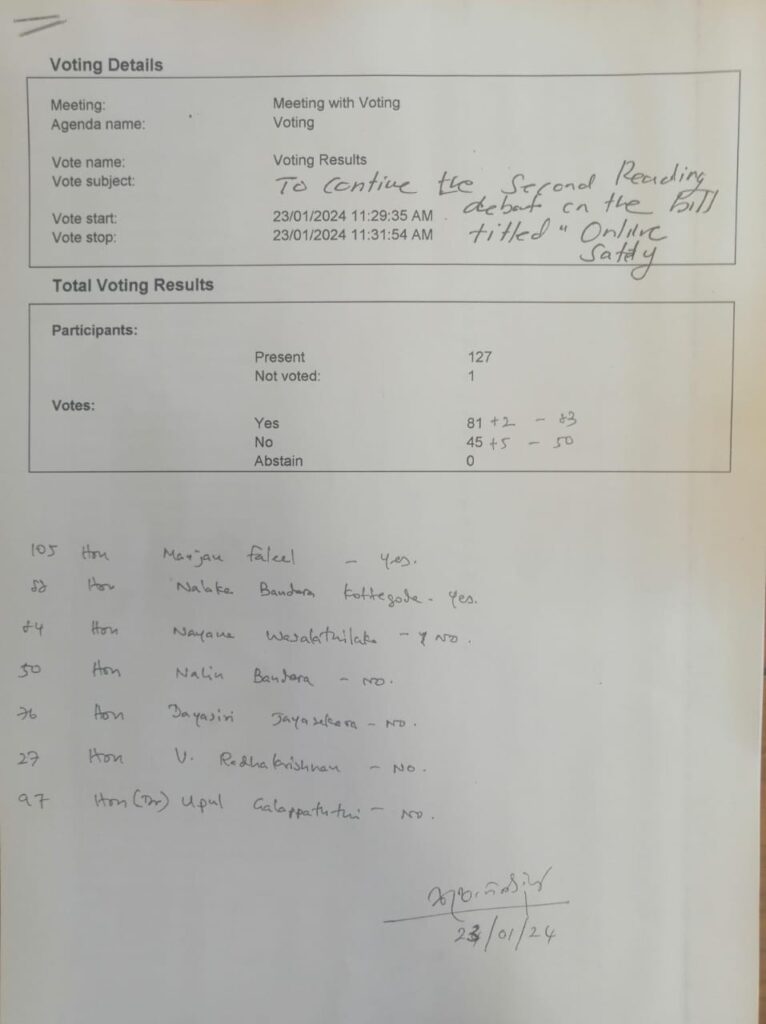 Voting Details
Meeting: Meeting with Voting
Agenda name: Voting
Vote name: Voting Results
Vote subject: To contine the Second Reading
debate on the Bill
Vote start: 23/01/2024 11:29:35 AM
Vote stop: 23/01/2024 11:31:54 AM
titled "Online
Safety
Total Voting Results
Participants:
Present 127
Not voted: 1
Votes:
Yes 81 +2 - 83
No 45 +5 - 50
Abstain 0
105 Hon Marjan Faleel - Yes.
Hon Nalaka Bandara Kottegoda - Yes.
84 Hon Nayana Wasalathilake - NO.
50 Hon Nalin Bandara - NO.
76 Hon Dayasiri Jayasekara - NO.
27 Hon V. Radhakrishnan - NO.
97 Hon (Dr) Upul Galappaththi - NO.
23/01/24